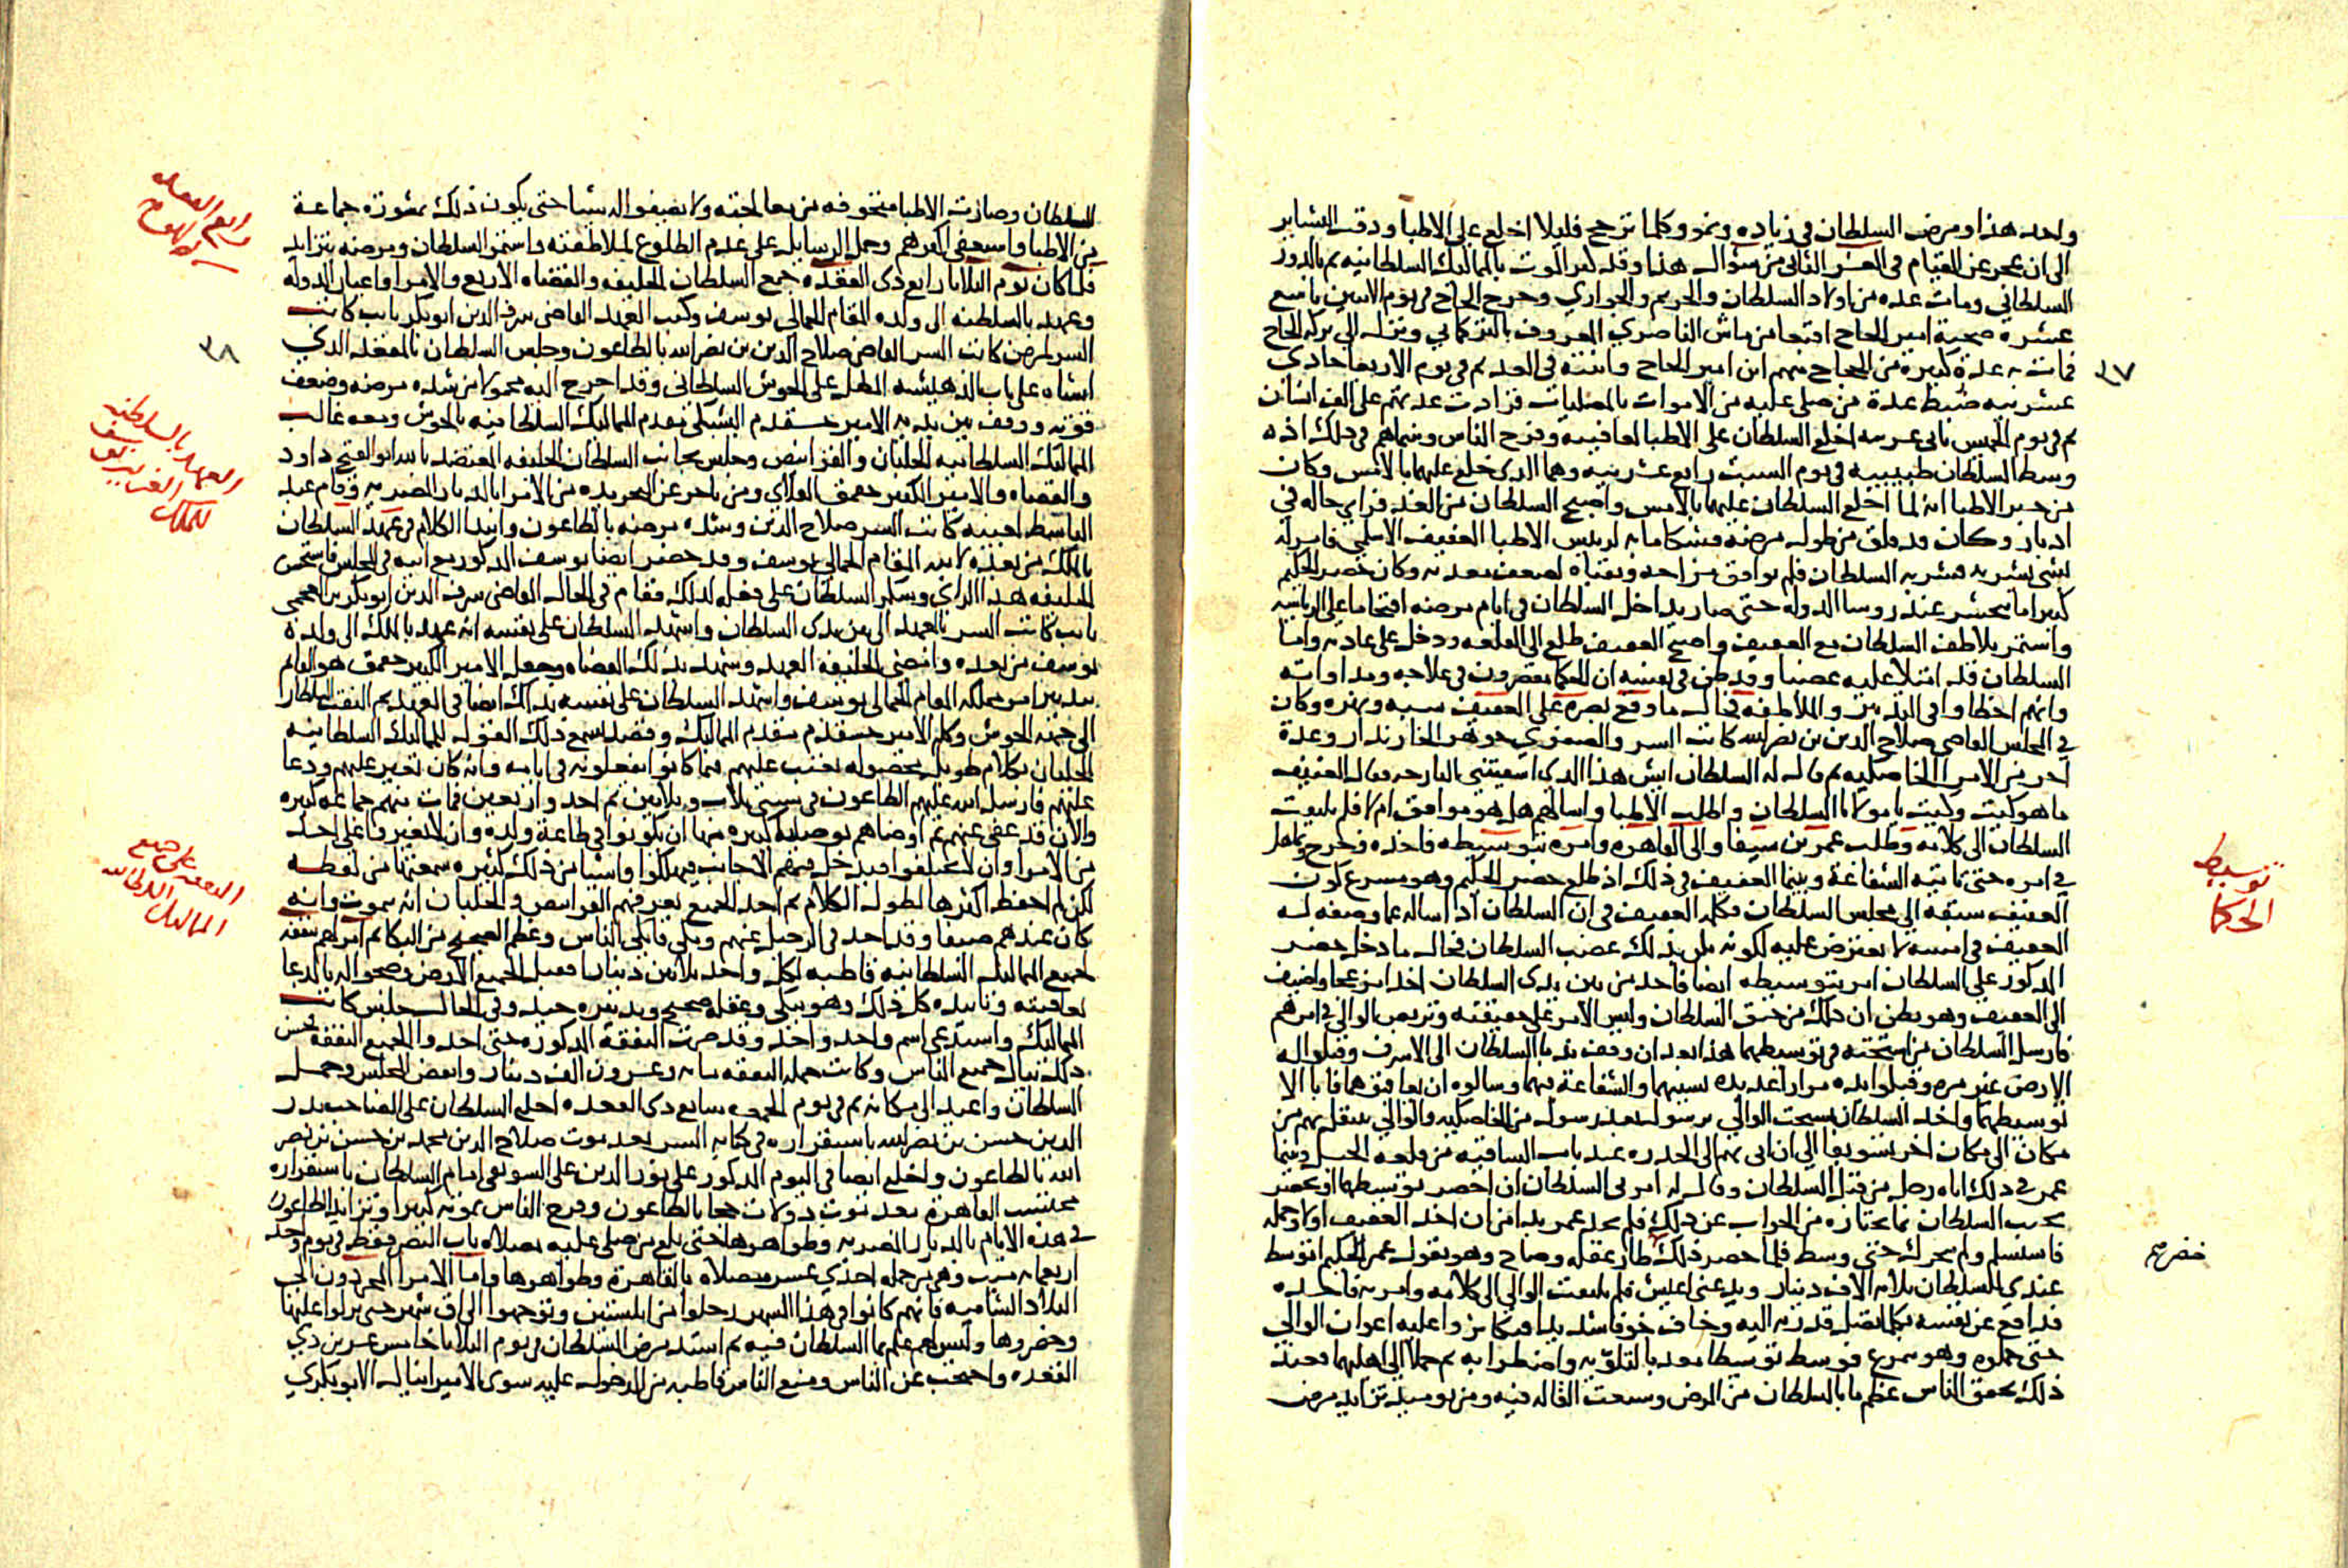 واحد هذا ومرض السلطان في زياده ونمو وكلما ترجح قليلا اخلع على الاطبا ودقت البشاير
الى ان عجز عن القيام في العشر الثاني من شوال هذا وقد كثر الموت بالمماليك السلطانيه ثم بالدور
السلطاني ومات عده من اولاد السلطان والحريم والجواري وخرج الحاج في يوم الاثنين تاسع
عشره صحبة امير الحاج اقبغا من ماش الناصري المعروف بالتركماني ونزل الى بركة الحاج
فمات به عدة كبيرة من الحجاج منهم ابن امير الحاج وابنته في الغد ثم في يوم الاربعا حادي
عشرينه ضبط عدة من صلى عليه من الاموات بالمصليات فزادت عدتهم على الف انسان
ثم في يوم الخميس ثاني عشرينه اخلع السلطان على الاطبا لعافيته وفرح الناس وبينما هم في ذلك اذ
وسط السلطان طبيبيه في يوم السبت رابع عشرينه وهما الذي خلع عليهما بالامس وكان
من خبر الاطبا انه لما اخلع السلطان عليهما بالامس واصبح السلطان من الغد فراى حاله في
ادبار وكان قد قلق من طول مرضه فشكا ما به لريس الاطبا العفيف الاسلمي فامر له
بشي يشربه فشربه السلطان فلم يوافق مزاجه وتقياه لضعف معدته وكان خضر الحكيم
كثيرا ما يحشر عند روسا الدوله حتى صار يداخل السلطان في ايام مرضه اقتحاما على الرياسه
واستمر يلاطف السلطان مع العفيف واصبح العفيف طلع الى القلعه ودخل على عادته واما
السلطان قد امتلا عليه غضبا وقد ظن في نفسه ان الحكما يقصرون في علاجه ومداواته
وانهم اخطاوا في التدبير والملاطفه فحال ما وقع بصره على العفيف سبه ونهره وكان
في المجلس القاضي صلاح الدين بن نصر الله كاتب السر والصفوي جوهر الخازندار وعدة
اخر من الامرا الخاصكيه ثم قال له السلطان ايش هذا الذي اسقيتني البارحه فقال العفيف
ما هو كيت وكيت يا مولانا السلطان واطلب الاطبا واسالهم هل هو موافق ام لا فلم يلتفت
السلطان الى كلامه وطلب عمر بن سيفا والي القاهره وامره بتوسيطه فاخذه وخرج وتماهل
في امره حتى تاتيه الشفاعة وبينما العفيف في ذلك اذ طلع خضر الحكيم وهو مسرع كون
العفيف سبقه الى مجلس السلطان فكلمه العفيف في ان السلطان اذا ساله عما وصفه له
العفيف في امسه لا يعترض عليه لكونه على بذلك غضب السلطان فحال ما دخل خضر
المذكور على السلطان امر بتوسيطه ايضا فاخذ من بين يدي السلطان اخذا مزعجا واضيف
الى العفيف وهو يظن ان ذلك من حنق السلطان وليس الامر على حقيقته وتربص الوالي في امرهم
فارسل السلطان من استحثه في توسيطهما هذا بعد ان وقف ندما السلطان الى الاشرف وقبلوا له
الارض غير مره وقبلوا يده مرارا عديده بسببهما والشفاعة فيهما وسالوه ان يعاقبهما فابا الا
توسيطهما واخذ السلطان يستحث الوالي برسول بعد رسول من الخاصكيه والوالي ينقلهم من
مكان الى مكان اخر تسويفا الى ان اتى بهم الى الحدره عند باب الساقيه من قلعة الجبل وبينما
عمر في ذلك اتاه رجل من قبل السلطان وقال له امرني السلطان ان احضر توسيطهما او تحضر
تجيب السلطان بما تختاره من الجواب عن ذلك فلم يجد عمر بدا من ان اخذ العفيف اولا وحمله
فاستسلم ولم يتحرك حتى وسط فلما حضر ذلك طار عقله وصاح وهو يقول عمر الحكيم اتوسط
عندي للسلطان ثلاثه الاف دينار ويدعني اعيش فلم يلتفت الوالي الى كلامه وامر به فاخذه
فدافع عن نفسه بكل ما تصل قدرته اليه وخاف خوفا شديدا فتكاثروا عليه اعوان الوالي
حتى حملوه وهو يتمرغ فوسط توسيطا معذبا لتلويه واضطرابه ثم حملا الى اهليهما فعند
ذلك تحقق الناس عظم ما بالسلطان من المرض وسعت القاله فيه ومن يوميذ تزايد مرض
٣٧
توسيط
الحكما
خضر
السلطان وصارت الاطبا متخوفه من معالجته ولا يصفوا له شيا حتى يكون ذلك بمشورة جماعة
من الاطبا واستعفى اكثرهم وحمل الرسايل على عدم الطلوع لملاطفته واستمر السلطان ومرضه يتزايد
فلما كان يوم الثلاثا رابع ذي القعده جمع السلطان الخليفه والقضاه الاربع والامرا واعيان الدوله
وعهد بالسلطنه الى ولده المقام الجمالي يوسف وكتب العهد القاضي شرف الدين ابوبكر نايب كاتب
السر لمرض كاتب السر القاضي صلاح الدين بن نصر الله بالطاعون وجلس السلطان بالمقعد الذي
انشاه على باب الدهيشه المطل على الحوش السلطاني وقد اخرج اليه محمولا من شده مرضه وضعف
قوته ووقف بين يديه الامير خشقدم اليشبكي مقدم المماليك السلطانيه بالحوش ومعه غالب
المماليك السلطانيه الجلبان والقرانيص وجلس بجانب السلطان الخليفه المعتضد بالله ابوالفتح داود
والقضاه والامير الكبير جقمق العلاي ومن تاخر عن التجريده من الامرا بالديار المصريه وقام عبد
الباسط لغيبة كاتب السر صلاح الدين وشده مرضه بالطاعون وابتدا الكلام في عهد السلطان
بالملك من بعده لابنه المقام الجمالي يوسف وقد حضر ايضا يوسف المذكور مع ابيه في المجلس فاستحسن
الخليفه هذا الراي وشكر السلطان على فعله لذلك فقام في الحال القاضي شرف الدين ابوبكر بن العجمي
نايب كاتب السر بالعهد الى بين يدي السلطان واشهد السلطان على نفسه انه عهد بالملك الى ولده
يوسف من بعده وامضى الخليفه العهد وشهد بذلك القضاه وجعل الامير الكبير جقمق هو القايم
بتدبير امر مملكه المقام الجمالي يوسف واشهد السلطان على نفسه بذلك ايضا في العهد ثم التفت السلطان
الى جهة الحوش وكلم الامير خشقدم مقدم المماليك وقصد يسمع ذلك القول للمماليك السلطانيه
الجلبان بكلام طويل محصوله يعتب عليهم فيما كانوا يفعلونه في ايامه وانه كان تغير عليهم ودعا
عليهم فارسل الله عليهم الطاعون في سنتي ثلاث وثلاثين ثم احد واربعين فمات منهم جماعة كبيره
والان قد عفى عنهم ثم اوصاهم بوصايا كثيره منها ان يكونوا في طاعة ولده وان لا يغيروا على احد
من الامرا وان لا يختلفوا فيدخل فيهم الاجانب فيهلكوا واشيا من ذلك كثيره سمعتها من لفظه
لكن لم احفظ اكثرها لطول الكلام ثم اخذ الجميع يعرفهم القرانيص والجلبان انه يموت وانه
كان عندهم ضيفا وقد اخذ في الرحيل عنهم وبكى فابكى الناس وعظم الضجيج من البكا ثم امر لهم بنفقه
لجميع المماليك السلطانيه قاطبه لكل واحد ثلاثين دينارا فقبل الجميع الارض وضجوا له بالدعا
بعافيته وتاييده كل ذلك وهو يبكي وعقله صحيح وتدبيره جيد وفي الحال جلس كاتب
المماليك واستدعى اسم واحد واحد وقد صرت النفقة المذكوره حتى اخذوا الجميع النفقه فحسن
ذلك ببال جميع الناس وكانت جمله النفقه مايه وعشرون الف دينار وانفض المجلس وحمل
السلطان واعيد الى مكانه ثم في يوم الجمعه سابع ذي القعده اخلع السلطان على الصاحب بدر
الدين حسن بن نصر الله باستقراره في كتابه السر بعد موت صلاح الدين محمد بن حسن بن نصر
الله بالطاعون واخلع ايضا في اليوم المذكور على نور الدين علي السويفي امام السلطان باستقراره
محتسب القاهرة بعد موت دولات خجا بالطاعون وفرح الناس بموته كثيرا وتزايد الطاعون
في هذه الايام بالديار المصريه وظواهرها حتى بلغ من صلي عليه بمصلاه باب النصر فقط في يوم واحد
اربعمايه ميت وهي من جمله احدى عشر مصلاه بالقاهرة وظواهرها واما الامرا المجردون الى
البلاد الشاميه فانهم كانوا في هذا الشهر رحلوا من ابلستين وتوجهوا الى اق شهر حتى نزلوا عليها
وحصروها وليس لهم علم بما السلطان فيه ثم اشتد مرض السلطان في يوم الثلاثا خامس عشرين ذي
القعده واحتجب عن الناس ومنع الناس قاطبه من الدخول عليه سوى الامير اينال الابوبكري
رابع القعده
٣٨
العهد بالسلطنه
للملك العزيز يوسف
النفقه على جميع
المماليك السلطانيه